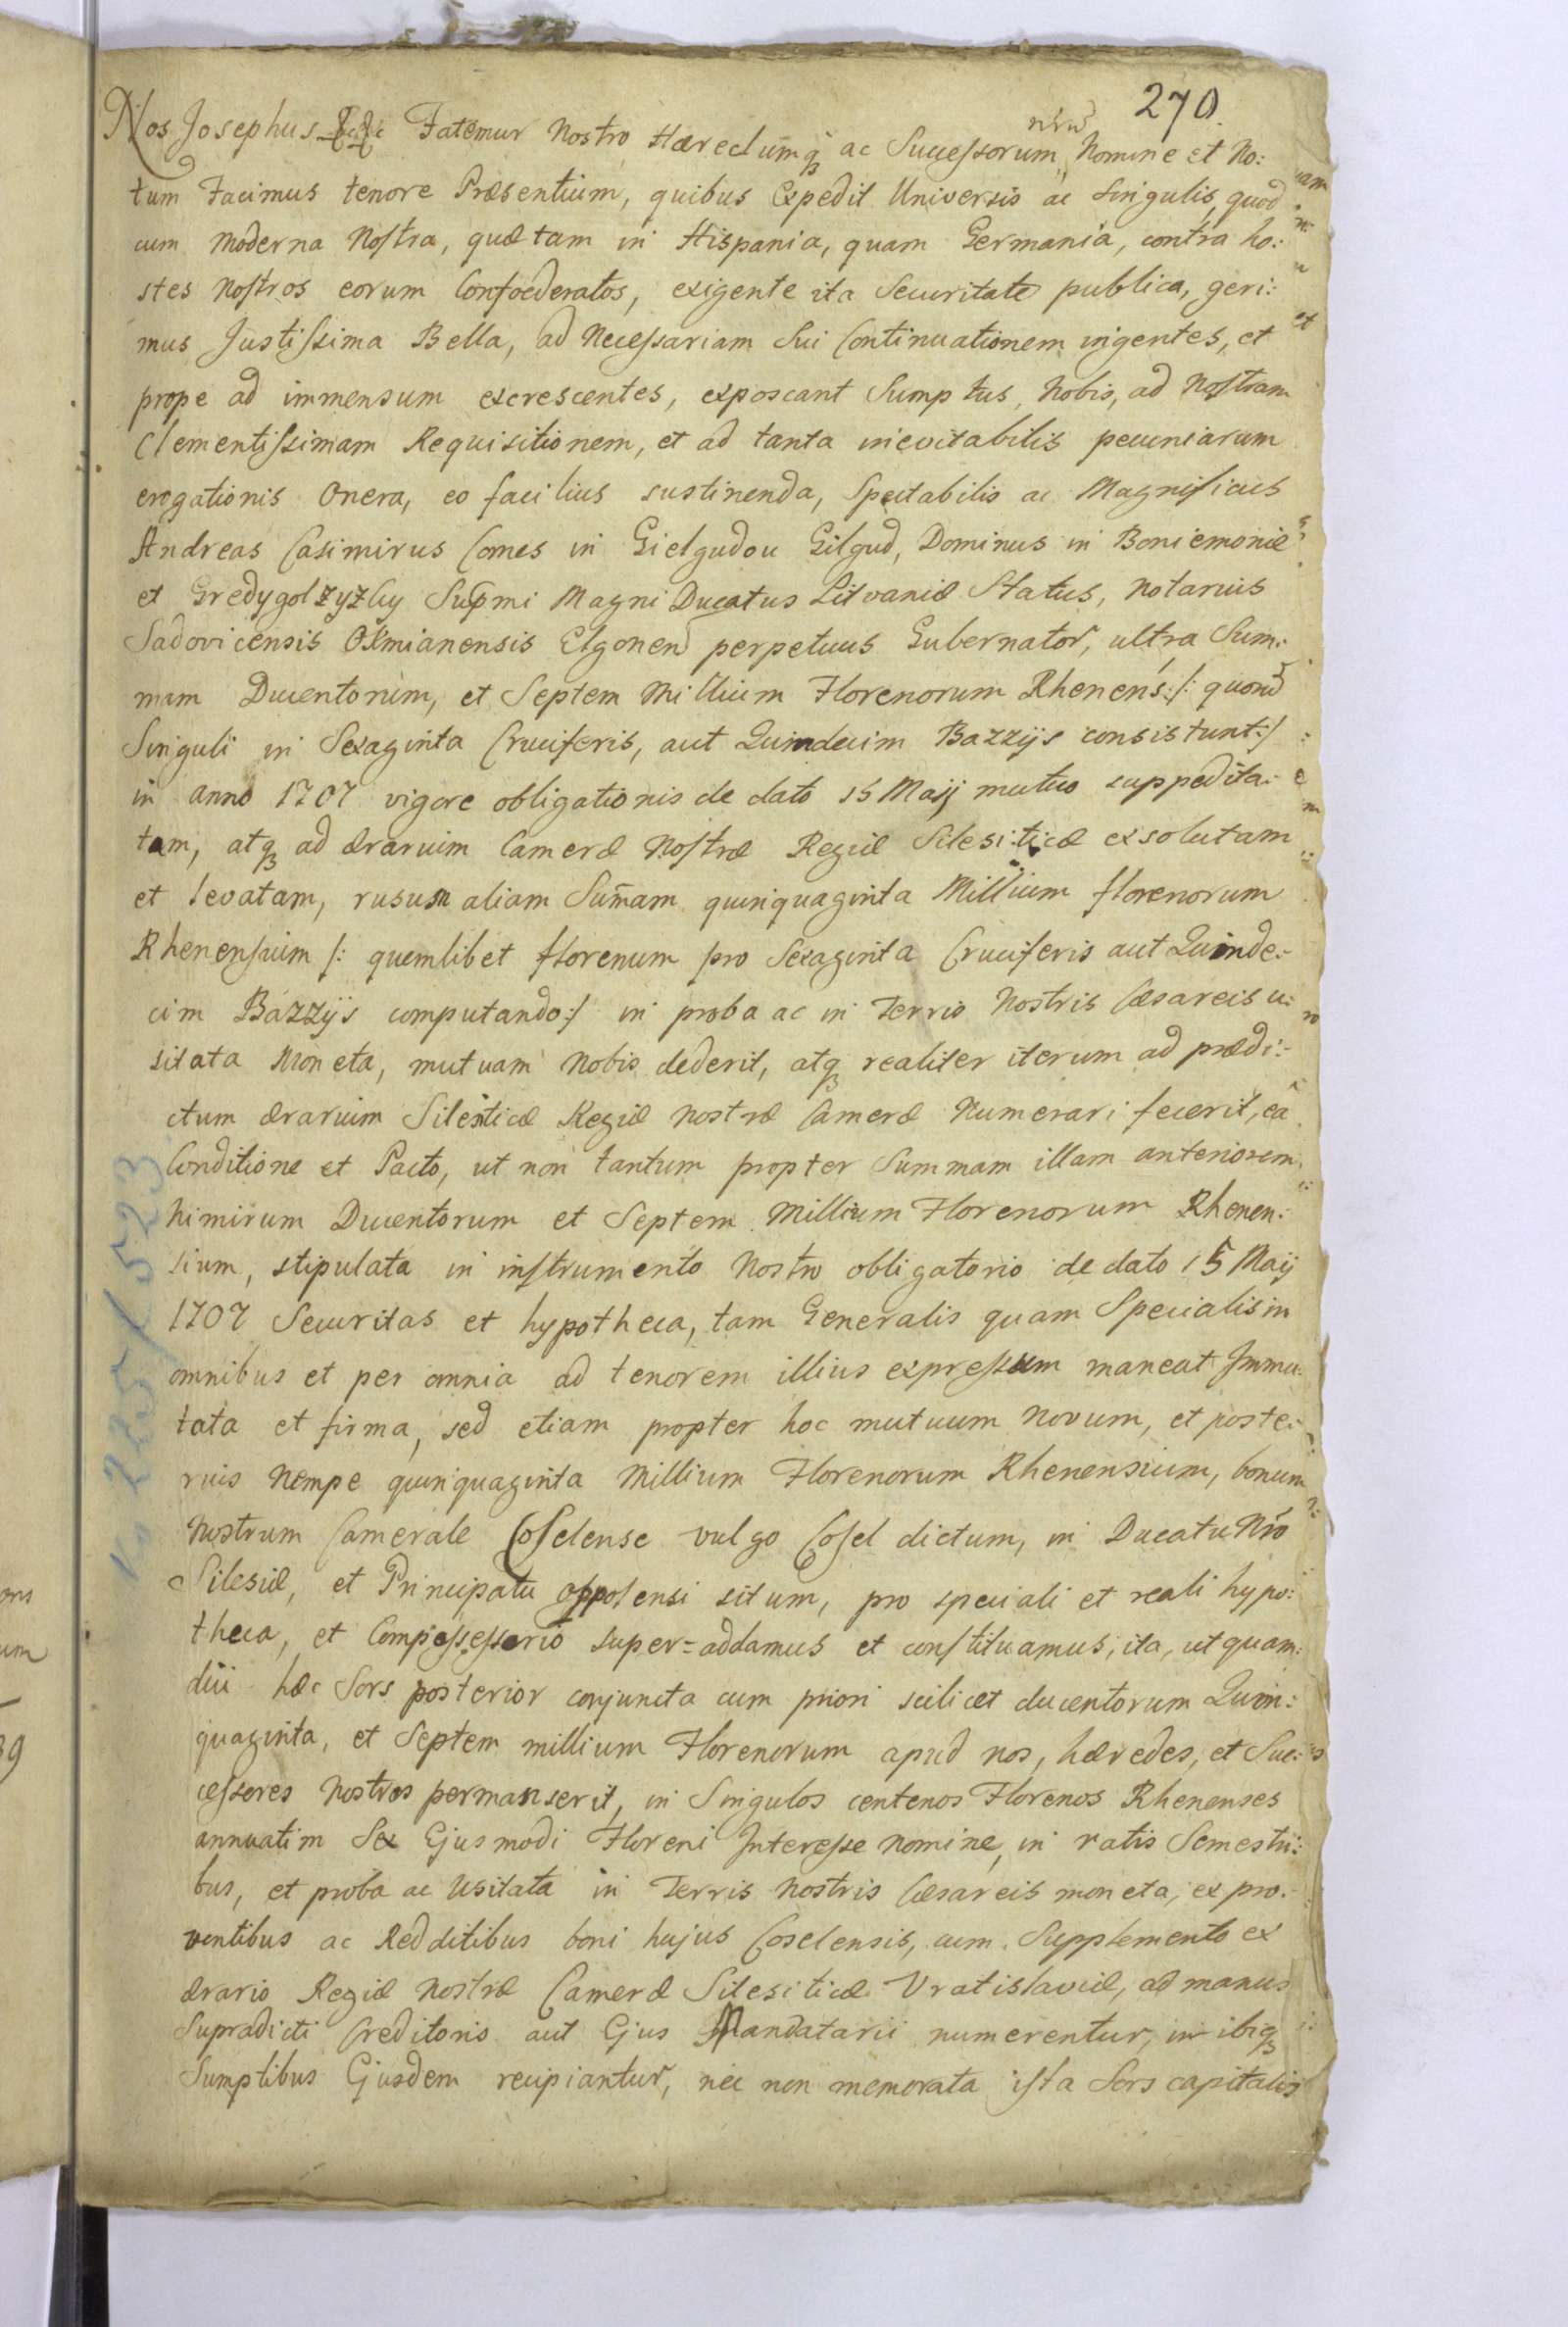 270.
Nos Josephus Fatemur Nostro Hæredumq₃ ac Successorum nr̄ū Nomine et No:
tum Facimus tenore Præsentium, quibus Expedit Universis ac Singulis, quod
cum moderna Nostra, quæ tam in Hispania, quam Germania, contra ho:
stes nostros eorum Confoederatos, exigente ita Securitate publica, geri:
mus Justissima Bella, ad Necessariam Sui Continuationem ingentes, et
prope ad immensum excrescentes, exposcant Sumptus, Nobis, ad Nostram
Clementissimam Requisitionem, et ad tanta inevitabilis pecuniarum
erogationis Onera, eo facilius sustinenda, Spectabilis ac Magnificus
Andreas Casimirus Comes in Gielgudou Gilgud, Dominus in Boniemonie
et Gredygolzyzky Supmi Magni Ducatus Litvaniæ Status, Notarius
Sadovicensis Oxmianensis Elgonen perpetuus Gubernator, ultra Sum:
mam Ducentorum, et Septem Millium Florenorum Rhenens: /: quorū
Singuli in Sexaginta Cruciferis, aut Quindecim Bazzijs consistunt :/
in anno 1707 vigore obligationis de dato 15 Maij mutuo suppedita:
tam, atq₃ ad ærarium Cameræ Nostræ Regiæ Silesiticæ exsolutam
et levatam, rusum aliam Sum̄am quinquaginta Millium florenorum
Rhenensium /: quemlibet florenum pro Sexaginta Cruciferis aut Quinde:
cim Bazzijs computando :/ in proba ac in Terris Nostris Cæsareis u:
sitata Moneta, mutuam Nobis dederit, atq₃ realiter iterum ad prædi:
ctum ærarium Silesiticæ Regiæ Nostræ Cameræ Numerari fecerit, eâ
Conditione et Pacto, ut non tantum propter Summam illam anteriorem,
nimirum Ducentorum et Septem Millium Florenorum Rhenen:
sium, stipulata in instrumento Nostro obligatorio de dato 15 Maij
1707 Securitas et hypotheca, tam Generalis quam Specialis in
omnibus et per omnia ad tenorem illius expressum maneat Immu:
tata et firma, sed etiam propter hoc mutuum Novum, et poste:
rius Nempe quinquaginta Millium Florenorum Rhenensium, bonum
Nostrum Camerale Coselense vulgo Cosel dictum, in Ducatu Nr̄o
Silesiæ, et Principatu oppolensi situm, pro speciali et reali hypo:
theca, et Compossessorio super=addamus et constituamus, ita, ut quam:
diu hæc Sors posterior conjuncta cum priori scilicet ducentorum Quin:
quaginta, et Septem millium Florenorum apud nos, hæredes, et Suc:
cessores Nostros permanserit, in Singulos centenos Florenos Rhenenses
annuatim Sex Ejusmodi Floreni Interesse Nomine, in ratis Semestri:
bus, et proba ac Usitata in Terris Nostris Cæsareis moneta, ex pro:
ventibus ac Redditibus boni hujus Coselensis, cum Supplemento ex
ærario Regiæ Nostræ Cameræ Silesiticæ Vratislaviæ, ad manus
Supradicti Creditoris aut Ejus Mandatarii numerentur, in ibiq₃
Sumptibus Ejusdem recipiantur, nec non memorata ista Sors capitalis